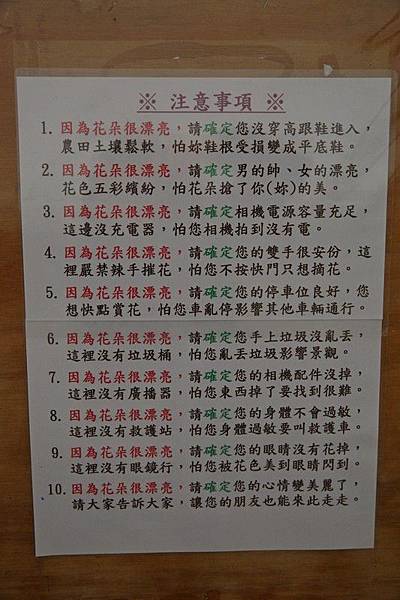 ※ 注意事項 ※
1. 因為花朵很漂亮，請確定您沒穿高跟鞋進入，
農田土壤鬆軟，怕妳鞋根受損變成平底鞋。
2. 因為花朵很漂亮，請確定男的帥、女的漂亮，
花色五彩繽紛，怕花朵搶了你(妳)的美。
3. 因為花朵很漂亮，請確定相機電源容量充足，
這邊沒充電器，怕您相機拍到沒有電。
4. 因為花朵很漂亮，請確定您的雙手很安份，這
裡嚴禁辣手摧花，怕您不按快門只想摘花。
5. 因為花朵很漂亮，請確定您的停車位良好，您
想快點賞花，怕您車亂停影響其他車輛通行。
6. 因為花朵很漂亮，請確定您手上垃圾沒亂丟，
這裡沒有垃圾桶，怕您亂丟垃圾影響景觀。
7. 因為花朵很漂亮，請確定您的相機配件沒掉，
這裡沒有廣播器，怕您東西掉了要找到很難。
8. 因為花朵很漂亮，請確定您的身體不會過敏，
這裡沒有救護站，怕您身體過敏要叫救護車。
9. 因為花朵很漂亮，請確定您的眼睛沒有花掉，
這裡沒有眼鏡行，怕您被花色美到眼睛閃到。
10. 因為花朵很漂亮，請確定您的心情變美麗了，
請大家告訴大家，讓您的朋友也能來此走走。